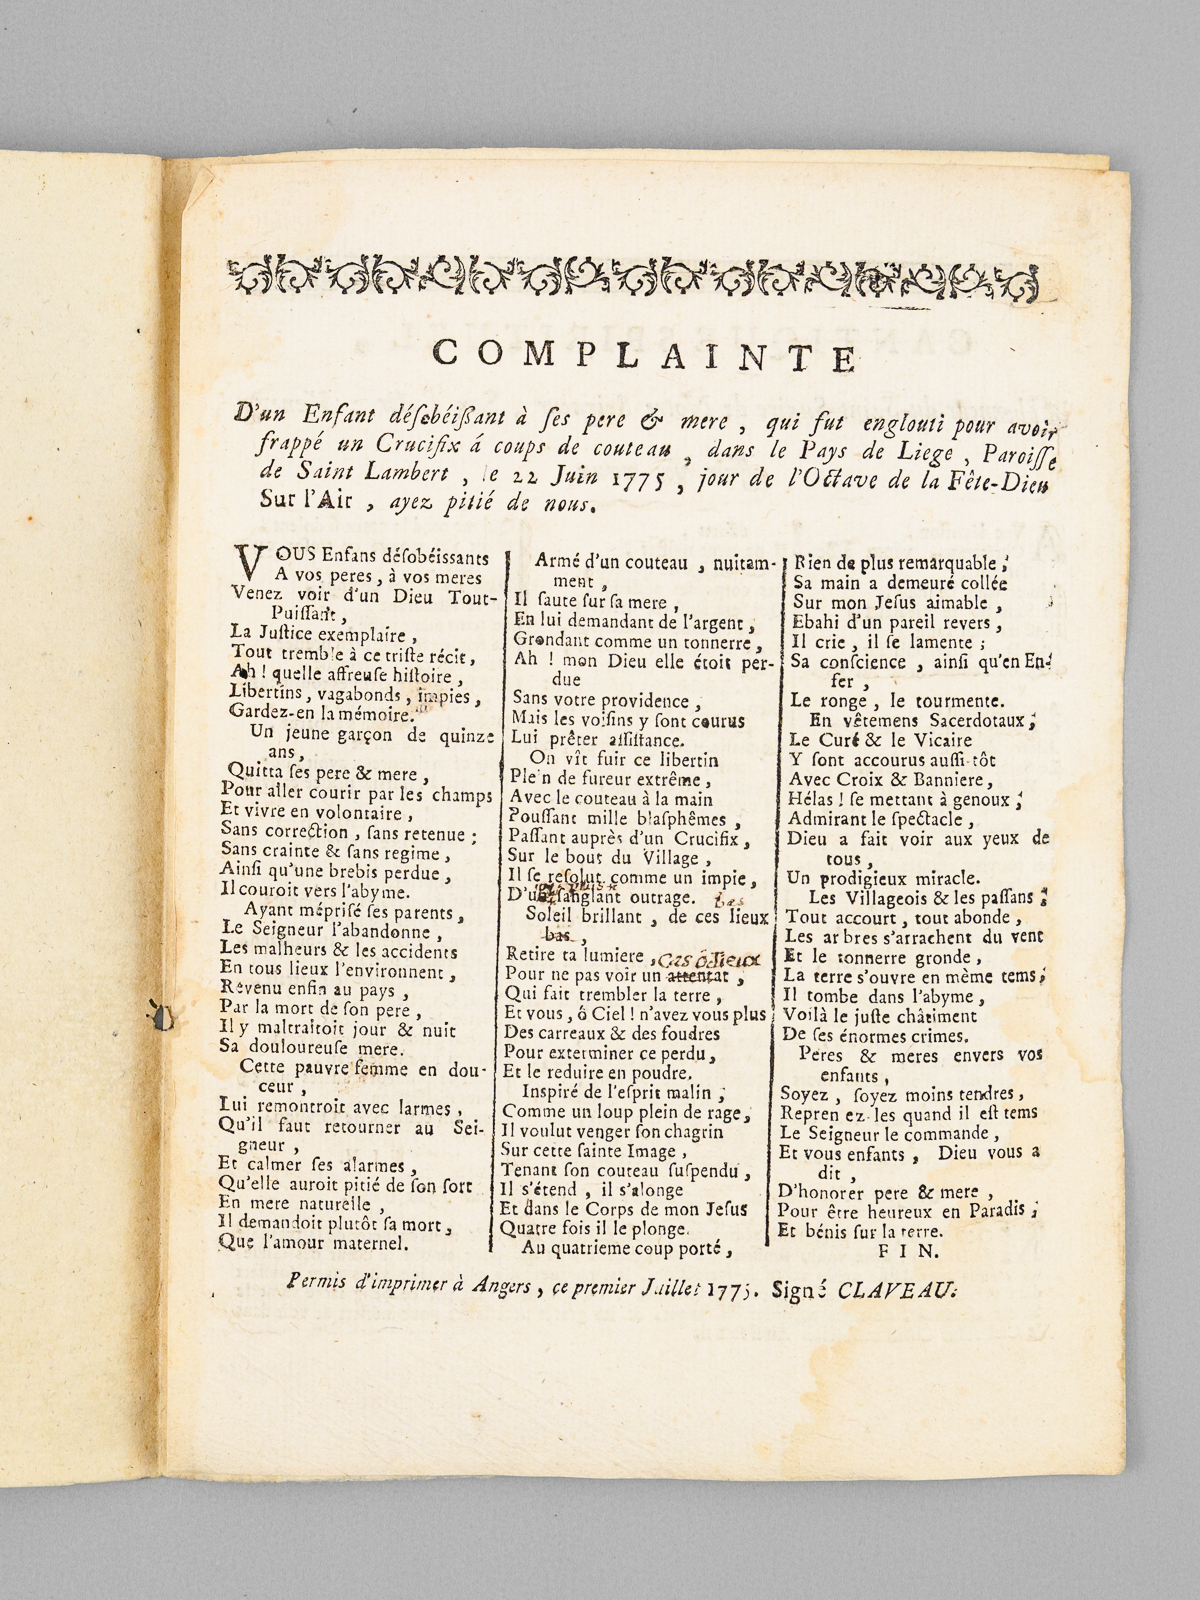 COMPLAINTE
D'un Enfant désobéißant à ſes pere & mere, qui fut englouti pour avoir
frappé un Crucifix á coups de couteau, dans le Pays de Liege, Paroiſſe
de Saint Lambert, le 22 Juin 1775, jour de l'Octave de la Fête-Dieu
Sur l'Air, ayez pitié de nous.
VOUS Enfans déſobéissants
A vos peres, à vos meres
Venez voir d'un Dieu Tout-
Puiſſant,
La Juſtice exemplaire,
Tout tremble à ce triſte récit,
Ah! quelle affreuſe hiſtoire,
Libertins, vagabonds, impies,
Gardez-en la mémoire.
Un jeune garçon de quinze
ans,
Quitta ſes pere & mere,
Pour aller courir par les champs
Et vivre en volontaire,
Sans correction, ſans retenue;
Sans crainte & ſans regime,
Ainſi qu'une brebis perdue,
Il couroit vers l'abyme.
Ayant mépriſé ſes parents,
Le Seigneur l'abandonne,
Les malheurs & les accidents
En tous lieux l'environnent,
Revenu enfin au pays,
Par la mort de ſon pere,
Il y maltraitoit jour & nuit
Sa douloureuſe mere.
Cette pauvre femme en dou-
ceur,
Lui remontroit avec larmes,
Qu'il faut retourner au Sei-
gneur,
Et calmer ſes alarmes,
Qu'elle auroit pitié de ſon ſort
En mere naturelle,
Il demandoit plutôt ſa mort,
Que l'amour maternel.
Armé d'un couteau, nuitam-
ment,
Il ſaute ſur ſa mere,
En lui demandant de l'argent,
Grondant comme un tonnerre,
Ah! mon Dieu elle étoit per-
due
Sans votre providence,
Mais les voiſins y ſont courus
Lui prêter aſſiſtance.
On vît fuir ce libertin
Plein de fureur extrême,
Avec le couteau à la main
Pouſſant mille blaſphêmes,
Paſſant auprès d'un Crucifix,
Sur le bout du Village,
Il ſe reſolut comme un impie,
D'un ſanglant outrage. bas
Soleil brillant, de ces lieux
bas,
Retire ta lumiere, cas odieux
Pour ne pas voir un attentat,
Qui fait trembler la terre,
Et vous, ô Ciel! n'avez vous plus
Des carreaux & des foudres
Pour exterminer ce perdu,
Et le reduire en poudre.
Inſpiré de l'eſprit malin;
Comme un loup plein de rage,
Il voulut venger ſon chagrin
Sur cette ſainte Image,
Tenant ſon couteau ſuſpendu,
Il s'étend, il s'alonge
Et dans le Corps de mon Jeſus
Quatre fois il le plonge.
Au quatrieme coup porté,
Rien de plus remarquable;
Sa main a demeuré collée
Sur mon Jeſus aimable,
Ebahi d'un pareil revers,
Il crie, il ſe lamente;
Sa conſcience, ainſi qu'en En-
fer,
Le ronge, le tourmente.
En vêtemens Sacerdotaux;
Le Curé & le Vicaire
Y ſont accourus auſſi-tôt
Avec Croix & Banniere,
Hélas! ſe mettant à genoux;
Admirant le ſpectacle,
Dieu a fait voir aux yeux de
tous,
Un prodigieux miracle.
Les Villageois & les paſſans;
Tout accourt, tout abonde,
Les arbres s'arrachent du vent
Et le tonnerre gronde,
La terre s'ouvre en mème tems;
Il tombe dans l'abyme,
Voilà le juſte châtiment
De ſes énormes crimes.
Peres & meres envers vos
enfants,
Soyez, ſoyez moins tendres,
Reprenez-les quand il eſt tems
Le Seigneur le commande,
Et vous enfants, Dieu vous a
dit,
D'honorer pere & mere,
Pour être heureux en Paradis;
Et bénis ſur la terre.
FIN.
Permis d'imprimer à Angers, ce premier Juillet 1775. Signé CLAVEAU.